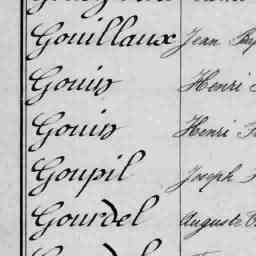 Gouillaux Jean
Gouin Henri
Gouin Henri
Goupil Joseph
Gourdel Auguste